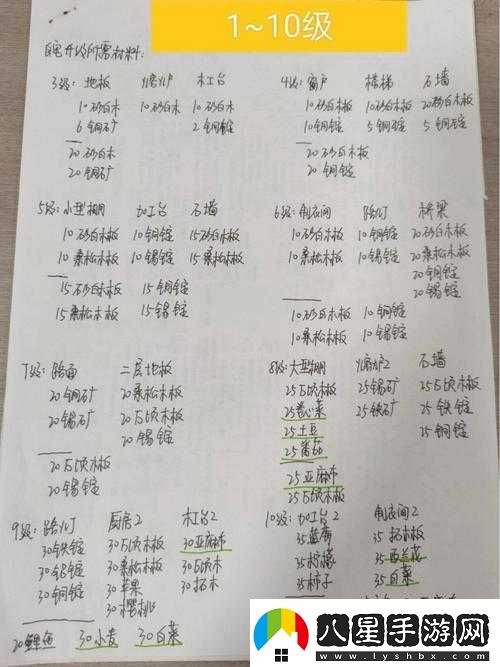 1~10级
良宅升级所需材料:
3级: 地板 熔炉 木工台
10砂白木 10砂白木 10砂白木
6铜矿 2铜锭
20砂白木
20铜矿
4级: 窗户 楼梯 石墙
10砂白木板 10砂白木板 20砂白木板
10铜锭 5铜锭 5铜锭
20砂白木板
20铜锭
5级: 小型棚 加工台 石墙
10砂白木板 10铜锭 15砂白木板
10桑松木板 10锡锭 15桑松木板
15砂白木板 15铜锭
15桑松木板 15锡锭
6级: 制衣间 路灯 桥梁
10砂白木板 10铜锭 20砂白木板
10桑松木板 10锡锭 20桑松木板
20铜锭
20锡锭
10砂白木板 10铜锭
10桑松木板 10锡锭
7级: 路面 二层地板
20铜矿 20桑松木板
20锡矿 20瓦坎木板
20锡锭
20瓦坎木板
20锡锭
8级: 大型棚 熔炉2 石墙
25瓦坎木板 25锡矿 25瓦坎木板
25卷心菜 25铁矿 25铁锭
25土豆 25铜锭
25番茄
25亚麻布
25瓦坎木板
9级: 路灯 厨房2 木工台2
30铁锭 30瓦坎木板 30亚麻布
30铝锭 30桑松木板 30瓦坎木
30铜锭 30苹果 30拓木
30樱桃
20鲤鱼 30小麦 30白菜
10级: 加工台2 制衣间2
35蓝莓 35拓木板
35柠檬 35西兰花
35柿子 35白菜
八星手游网
www.lyshbx.com